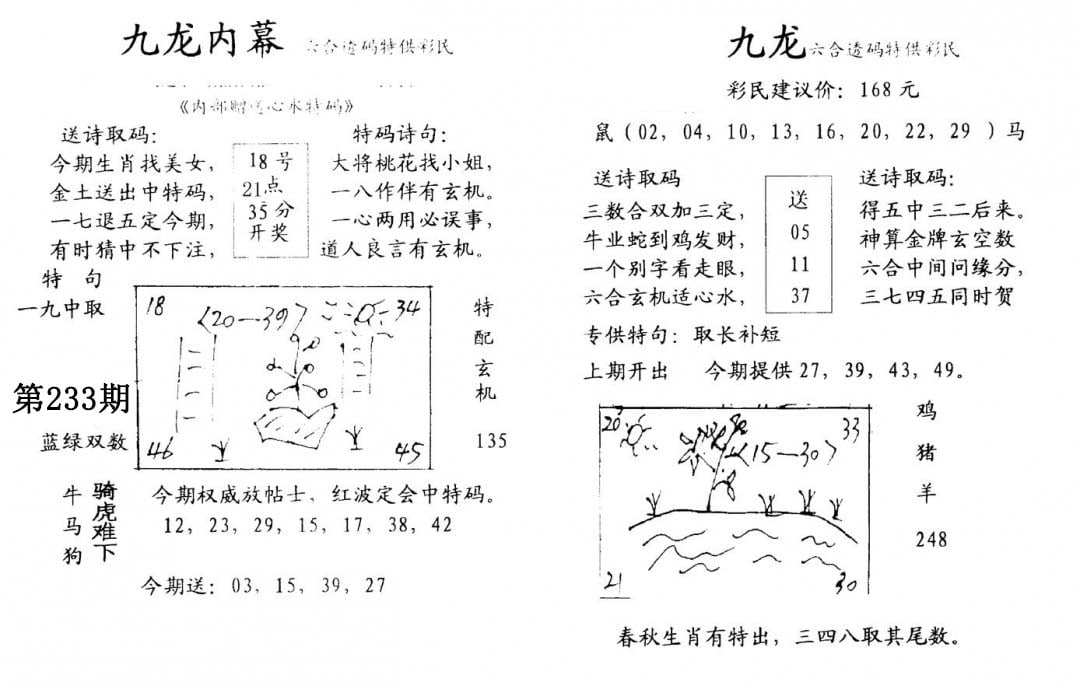 九龙内幕 六合透码特供彩民
《内部赠送心水特码》
送诗取码：
今期生肖找美女，
金土送出中特码，
一七退五定今期，
有时猜中不下注，
18号
21点
35分
开奖
特码诗句：
大将桃花找小姐，
一八作伴有玄机。
一心两用必误事，
道人良言有玄机。
特句
一九中取
第233期
蓝绿双数
18
〈20—39〉
34
46
45
特
配
玄
机
135
牛
马
狗
骑
虎
难
下
今期权威放帖士，红波定会中特码。
12，23，29，15，17，38，42
今期送：03，15，39，27
九龙六合透码特供彩民
彩民建议价：168元
鼠（02，04，10，13，16，20，22，29）马
送诗取码
三数合双加三定，
牛业蛇到鸡发财，
一个别字看走眼，
六合玄机适心水，
送
05
11
37
送诗取码：
得五中三二后来。
神算金牌玄空数
六合中间问缘分，
三七四五同时贺
专供特句：取长补短
上期开出 今期提供27，39，43，49。
20
〈15—30〉
33
21
30
鸡
猪
羊
248
春秋生肖有特出，三四八取其尾数。